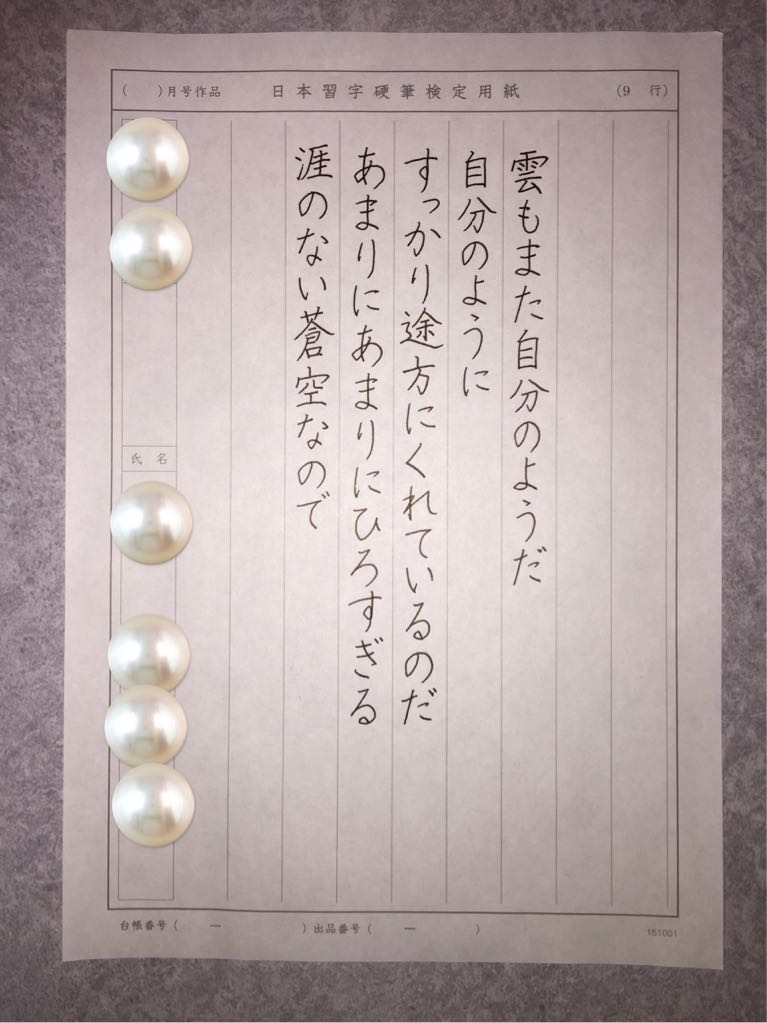 (　　)月号作品　日本習字硬筆検定用紙　(9　行)
雲もまた自分のようだ
自分のように
すっかり途方にくれているのだ
あまりにあまりにひろすぎる
涯のない蒼空なので
氏名
台帳番号(　　ー　　　　)出品番号(　　ー　　　　)
151001